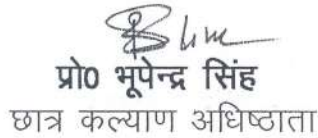 प्रो0 भूपेन्द्र सिंह
छात्र कल्याण अधिष्ठाता